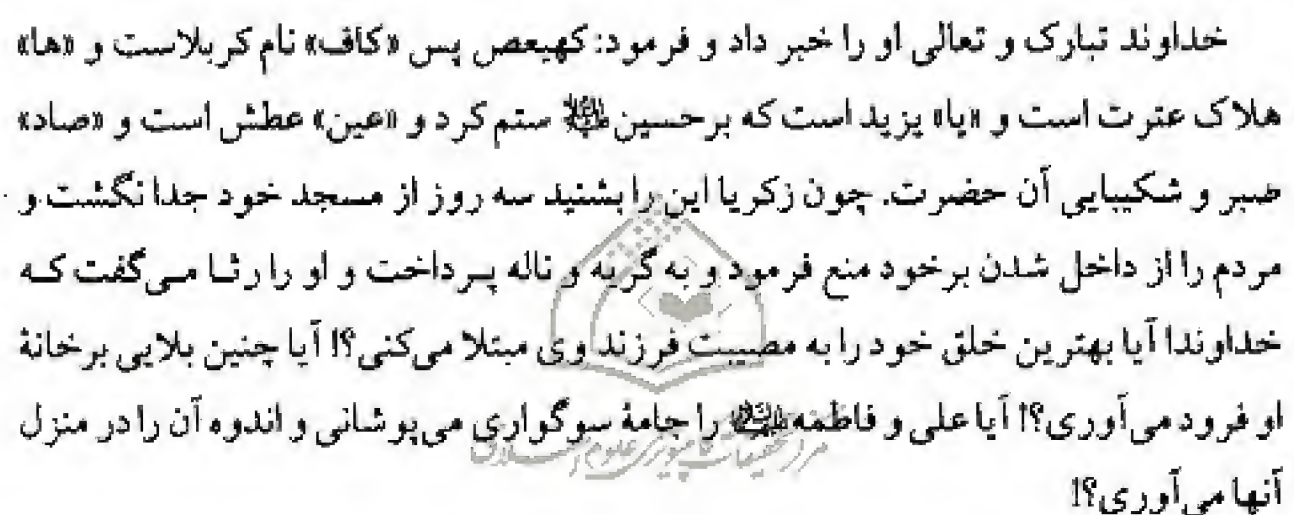 خداوند تبارک و تعالی او را خبر داد و فرمود: کهیعص پس «کاف» نام کربلاست و «ها»
هلاک عترت است و «یا» یزید است که بر حسین علیه‌السلام ستم کرد و «عین» عطش است و «صاد»
صبر و شکیبایی آن حضرت. چون زکریا این را بشنید سه روز از مسجد خود جدا نگشت و
مردم را از داخل شدن بر خود منع فرمود و به گریه و ناله پرداخت و او را رثا می‌گفت که
خداوندا آیا بهترین خلق خود را به مصیبت فرزند وی مبتلا می‌کنی؟! آیا چنین بلایی بر خانهٔ
او فرود می‌آوری؟! آیا علی و فاطمه علیهماالسلام را جامهٔ سوگواری می‌پوشانی و اندوه آن را در منزل
مرکز تحقیقات کامپیوتری علوم اسلامی
آنها می‌آوری؟!